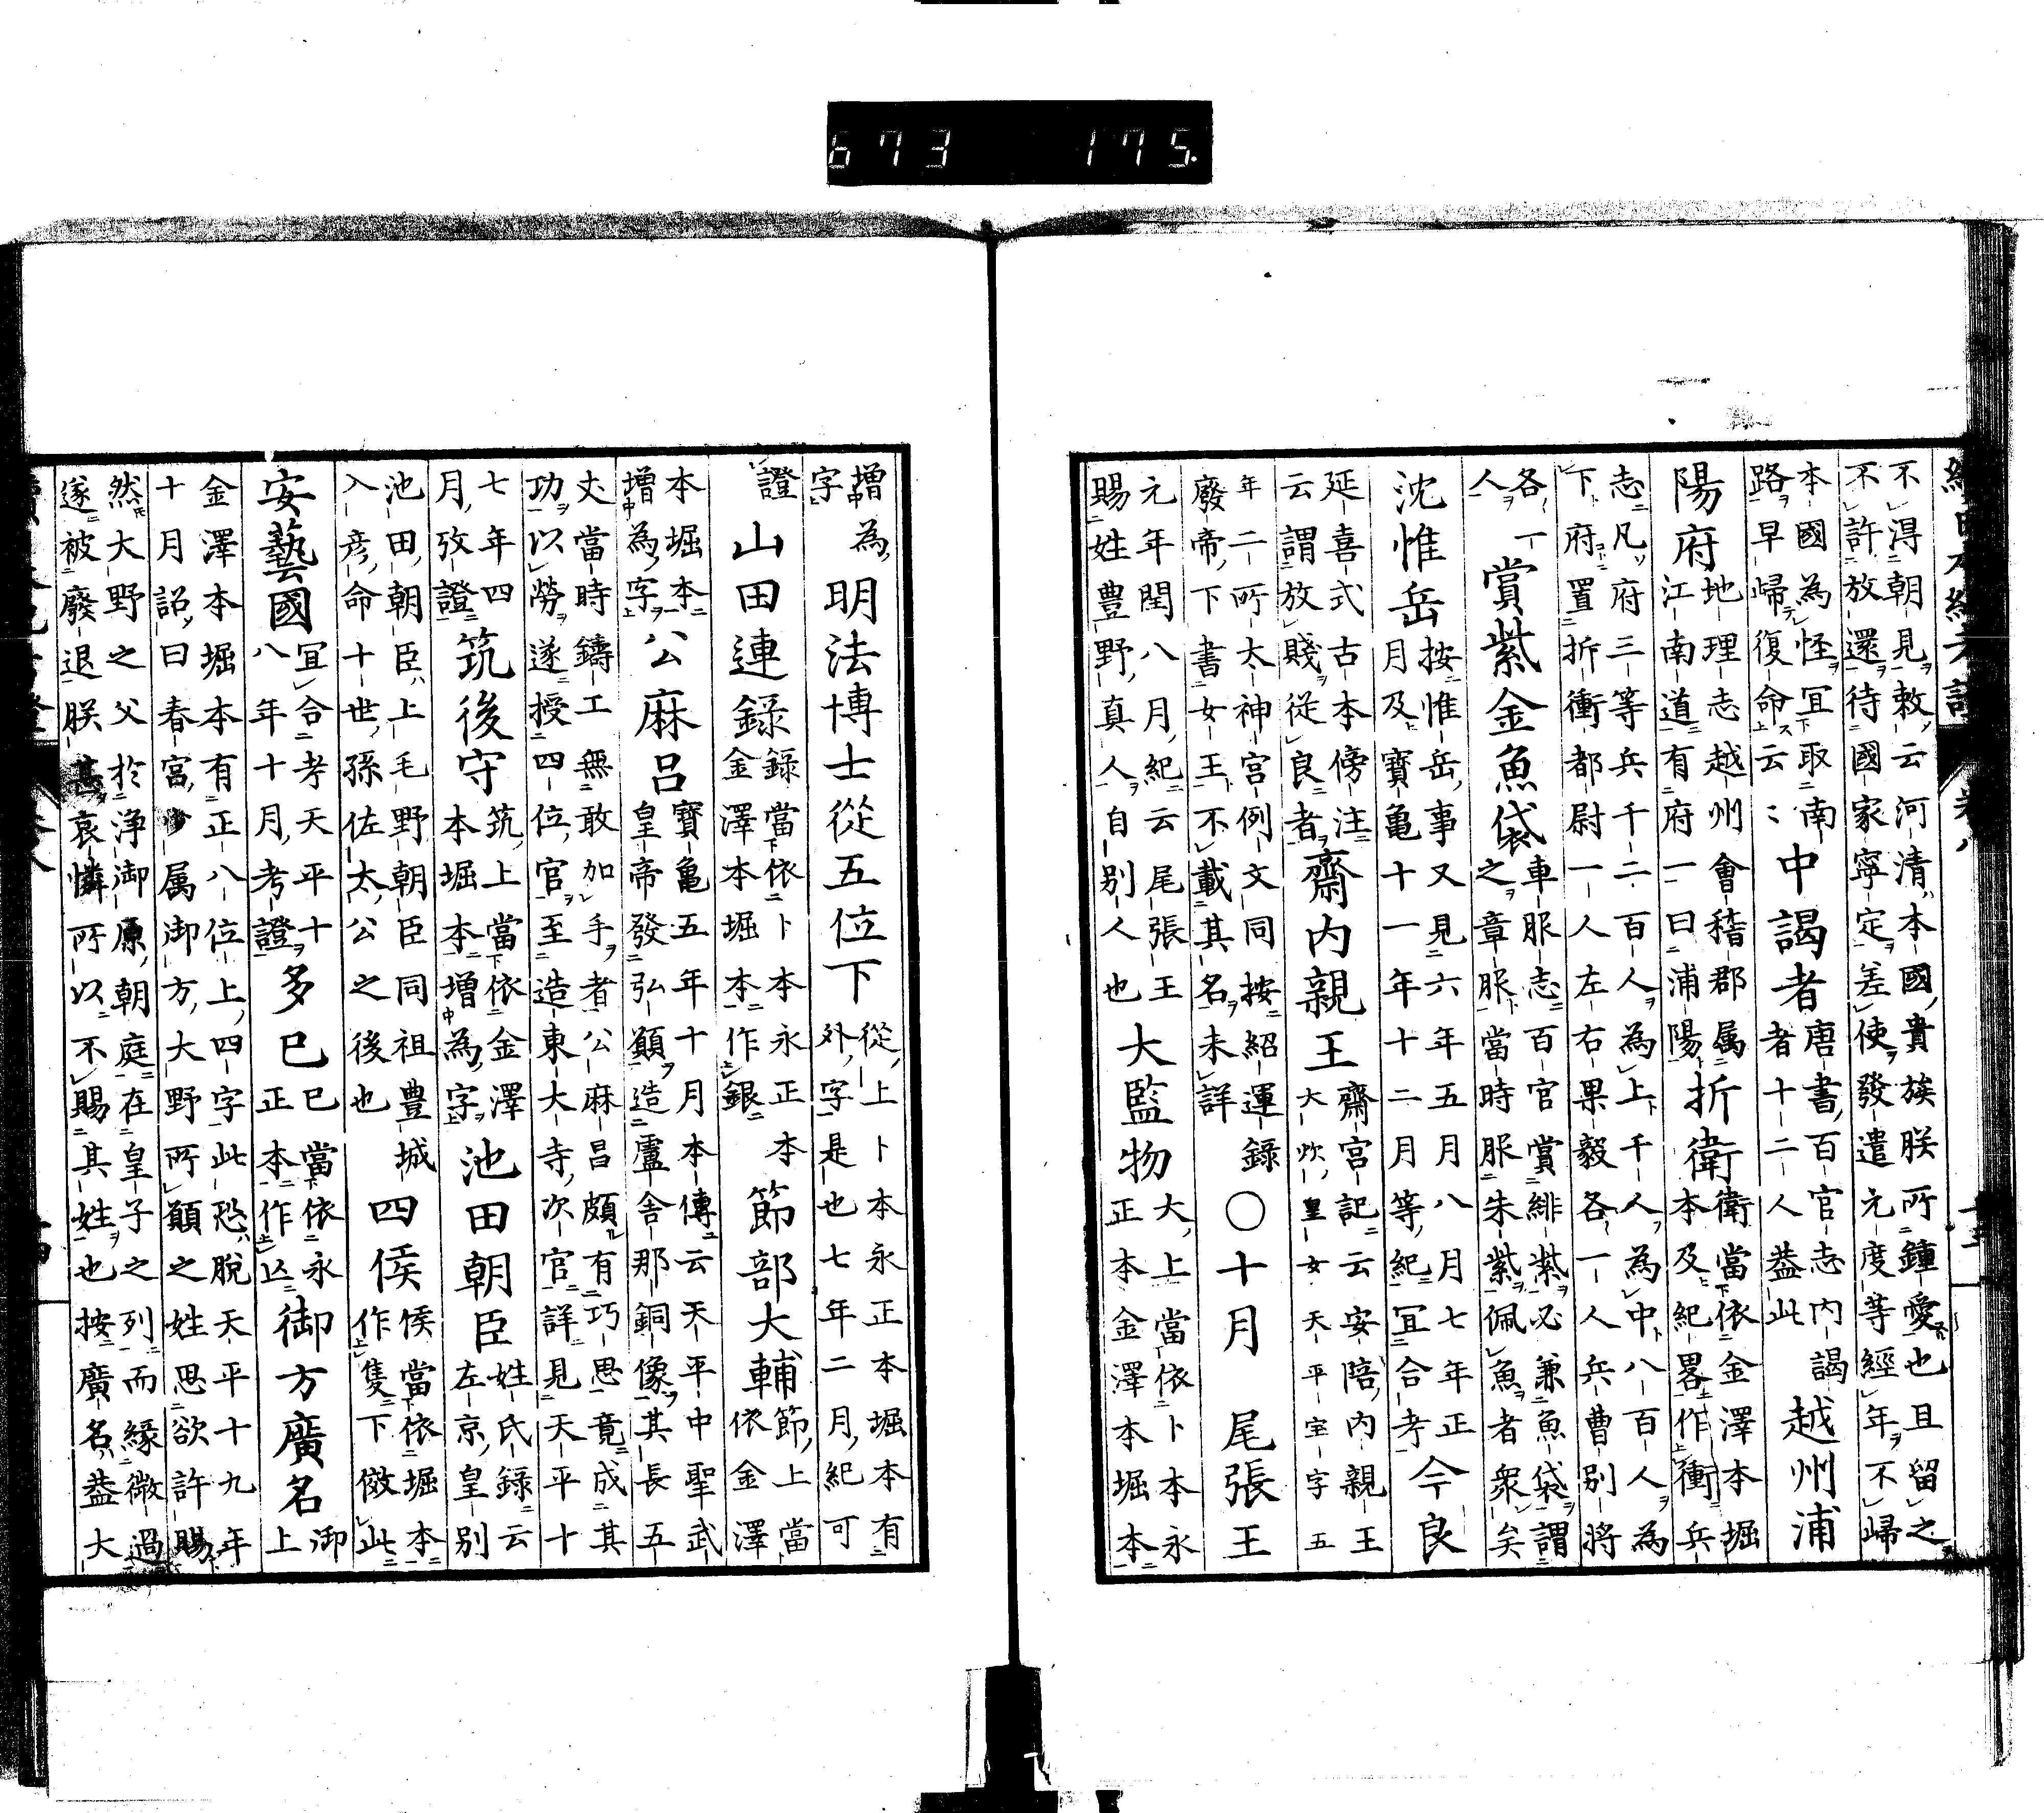 不得朝見敕云河清本國貴族朕所鍾愛也且留之
不許放還待國家寧定差使發遣元度等經年不歸
本國為怪宜取南
路早歸復命云々
中謁者
唐書百官志内謁
者十二人葢此
越州浦
陽府
地理志越州會稽郡属
江南道有府一曰浦陽
折衛
衛當依金澤本堀
本及紀畧作衝兵
志凡府三等兵千二百人為上千人為中八百人為
下府置折衝都尉一人左右果毅各一人兵曹别將
各一
人
賞紫金魚袋
車服志百官賞緋紫必兼魚袋謂
之章服當時服朱紫佩魚者衆矣
沈惟岳
按惟岳事又見六年五月八月七年正
月及寶亀十一年十二月等紀宜合考
今良
延喜式古本傍注
云謂放賤從良者
齋内親王
齋宮記云安陪内親王
大炊皇女天平宝字五
年二所太神宮例文同按紹運錄
廢帝下書女王不載其名未詳
〇十月 尾張王
元年閏八月紀云尾張王
賜姓豊野真人自别人也
大監物
大上當依卜本永
正本金澤本堀本
増為
字
明法博士從五位下
從上卜本永正本堀本有
外字是也七年二月紀可
證
山田連録
録當依卜本永正本
金澤本堀本作銀
節部大輔
節上當
依金澤
本堀本
増為字
公麻呂
寶亀五年十月本傳云天平中聖武
皇帝發弘願造盧舎那銅像其長五
丈當時鑄工無敢加手者公麻呂頗有巧思竟成其
功以勞遂授四位官至造東大寺次官詳見天平十
七年四
月攷證
筑後守
筑上當依金澤
本堀本増為字
池田朝臣
姓氏録云
左京皇别
池田朝臣上毛野朝臣同祖豊城
入彦命十世孫佐太公之後也
四俟
俟當依堀本
作隻下傚此
安藝國
宜合考天平十
八年十月考證
多巳
巳當依永
正本作
御方廣名
御
上
金澤本堀本有正八位上四字此恐脱天平十九年
十月詔曰春宮少属御方大野所願之姓思欲許賜
然大野之父於浄御原朝庭在皇子之列而緣微過
遂被廢退朕甚哀憐所以不賜其姓也按廣名葢大